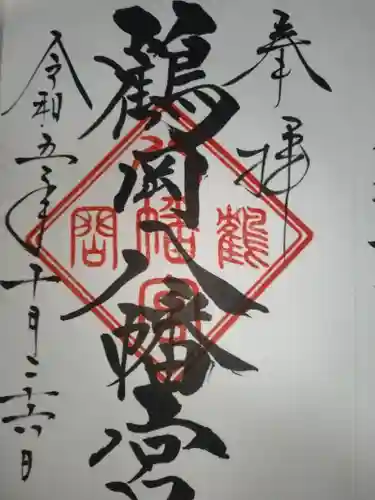 奉拝
鶴岡八幡宮
令和五年十月二十六日
鶴
幡宮
岡